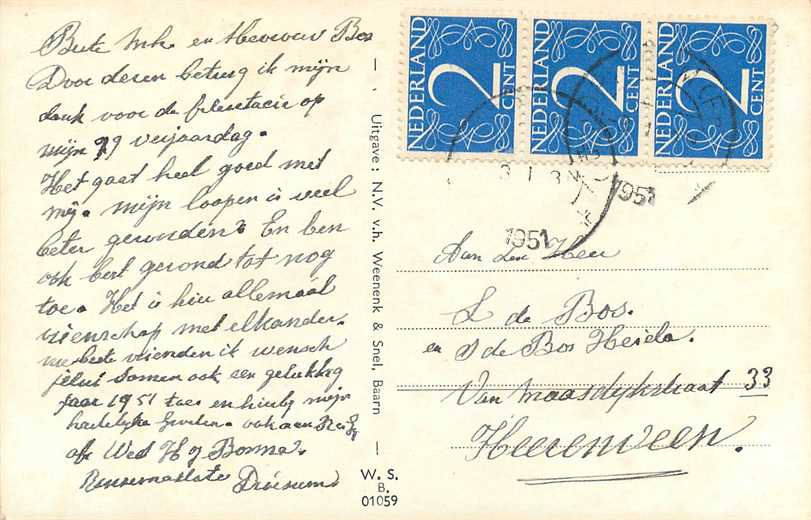 Beste Mh. en Mevrouw Bos
Door dezen betuig ik mijn
dank voor de felisetacie op
mijn 79 verjaardag.
Het gaat heel goed met
mij. mijn loopen is veel
beter geworden? En ben
ook best gezond tot nog
toe. Het is hier allemaal
vrienschap met elkander.
beste vrienden ik wensch
jelui samen ook een gelukkig
jaar 1951 toe en hierbij mijn
hartelijke Groeten. ook aan
afz Wed H J Bosma.
Driesum
Uitgave: N.V. v.h. Weenenk & Snel, Baarn
W. S.
B.
01059
NEDERLAND 2 CENT
NEDERLAND 2 CENT
NEDERLAND 2 CENT
3 1 3
1951
1951
Aan den Heer
L de Bos.
en S de Bos Heida.
Van Maasdijkstraat 33
Heerenveen.